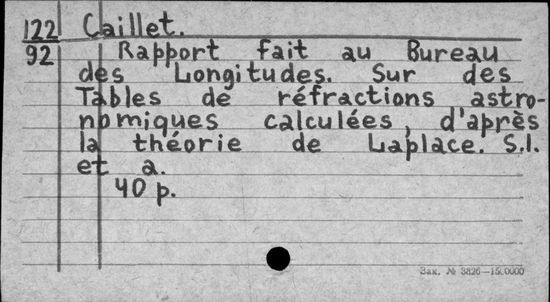 122 Caillet.
92 Rapport fait au Bureau
des Longitudes. Sur des
Tables de réfractions astro-
nomiques calculées, d'après
la théorie de Laplace. S.l.
et a.
40 p.
Зак. № 3826—150000